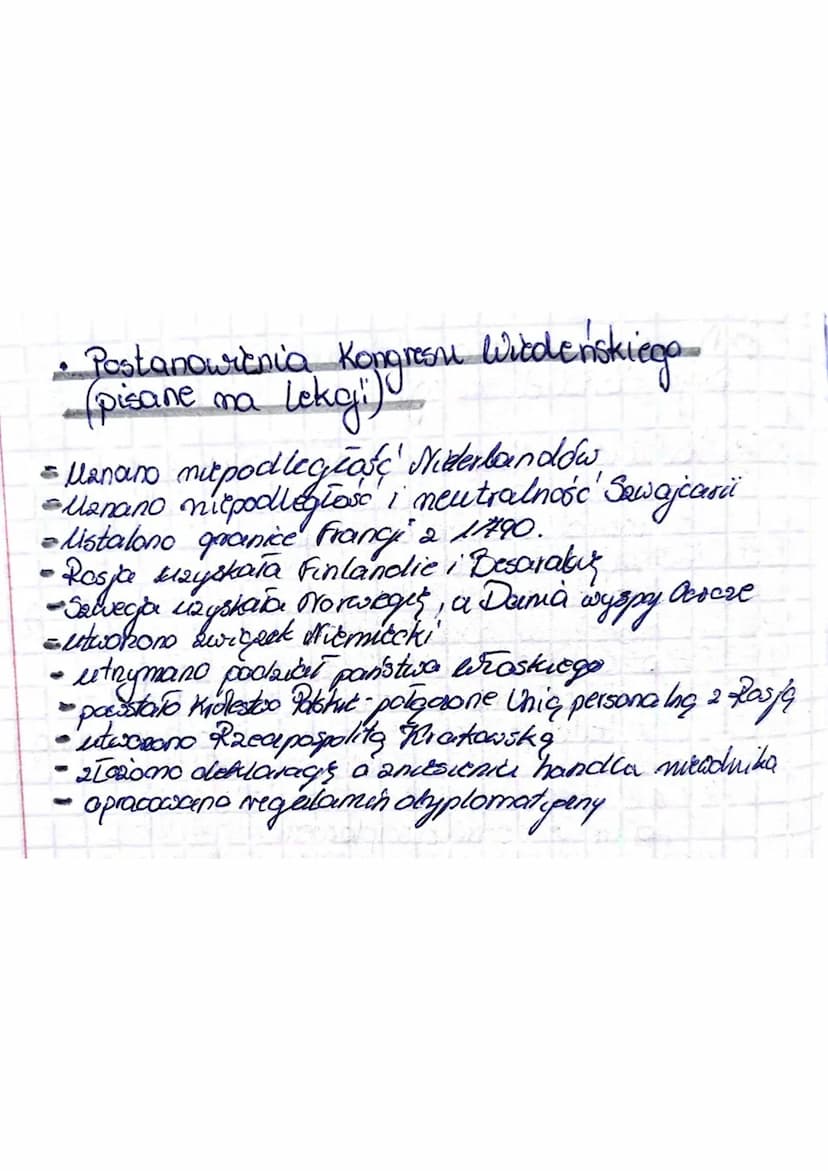 • Postanowienia Kongresu Wiedeńskiego
(pisane na lekcji)
- Uznano niepodległość Niderlandów
- Uznano niepodległość i neutralność Szwajcarii
- Ustalono granice Francji z 1790.
- Rosja uzyskała Finlandie i Besarabię
- Szwecja uzyskała Norwegię, a Dania wyspy Owcze
- utworzono związek Niemiecki
- utrzymano podział państwa włoskiego
- powstało Królestwo Polskie - połączone Unią personalną z Rosją
- utworzono Rzeczpospolitą Krakowską
- złożono deklarację o zniesieniu handlu niewolnika
- opracowano regulamin dyplomatyczny